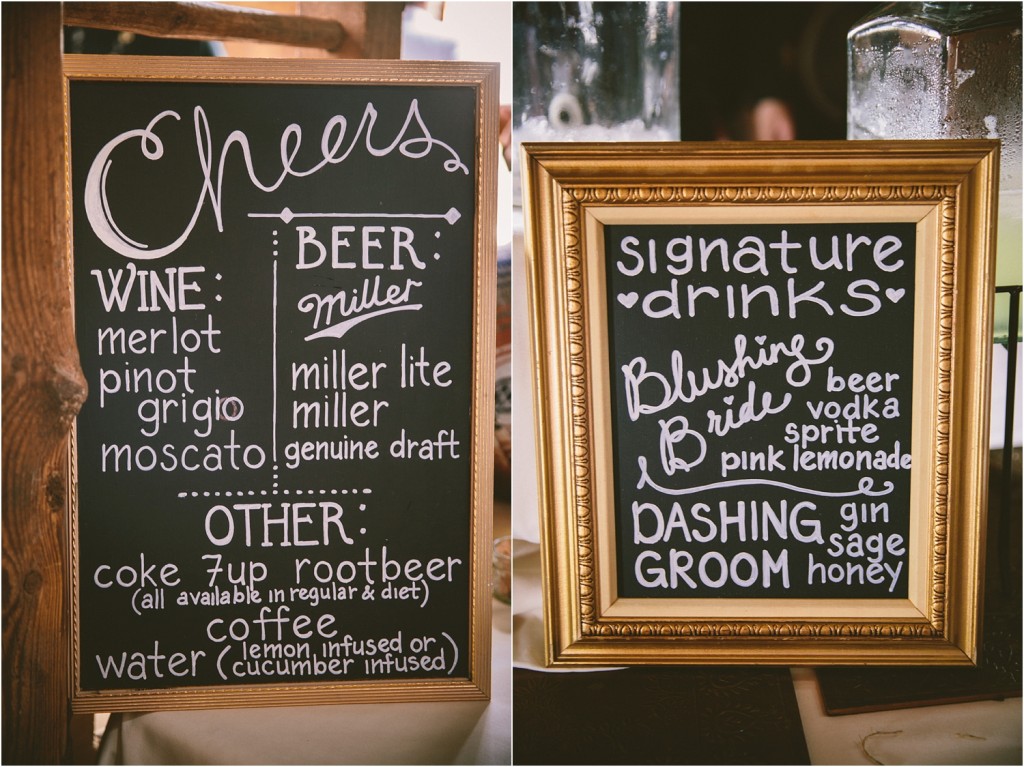 Cheers
WINE:
merlot
pinot
grigio
moscato
BEER:
Miller
miller lite
miller
genuine draft
OTHER:
coke 7up rootbeer
(all available in regular & diet)
coffee
water (lemon infused or
cucumber infused)
signature
drinks
Blushing
Bride
beer
vodka
sprite
pink lemonade
DASHING
GROOM
gin
sage
honey